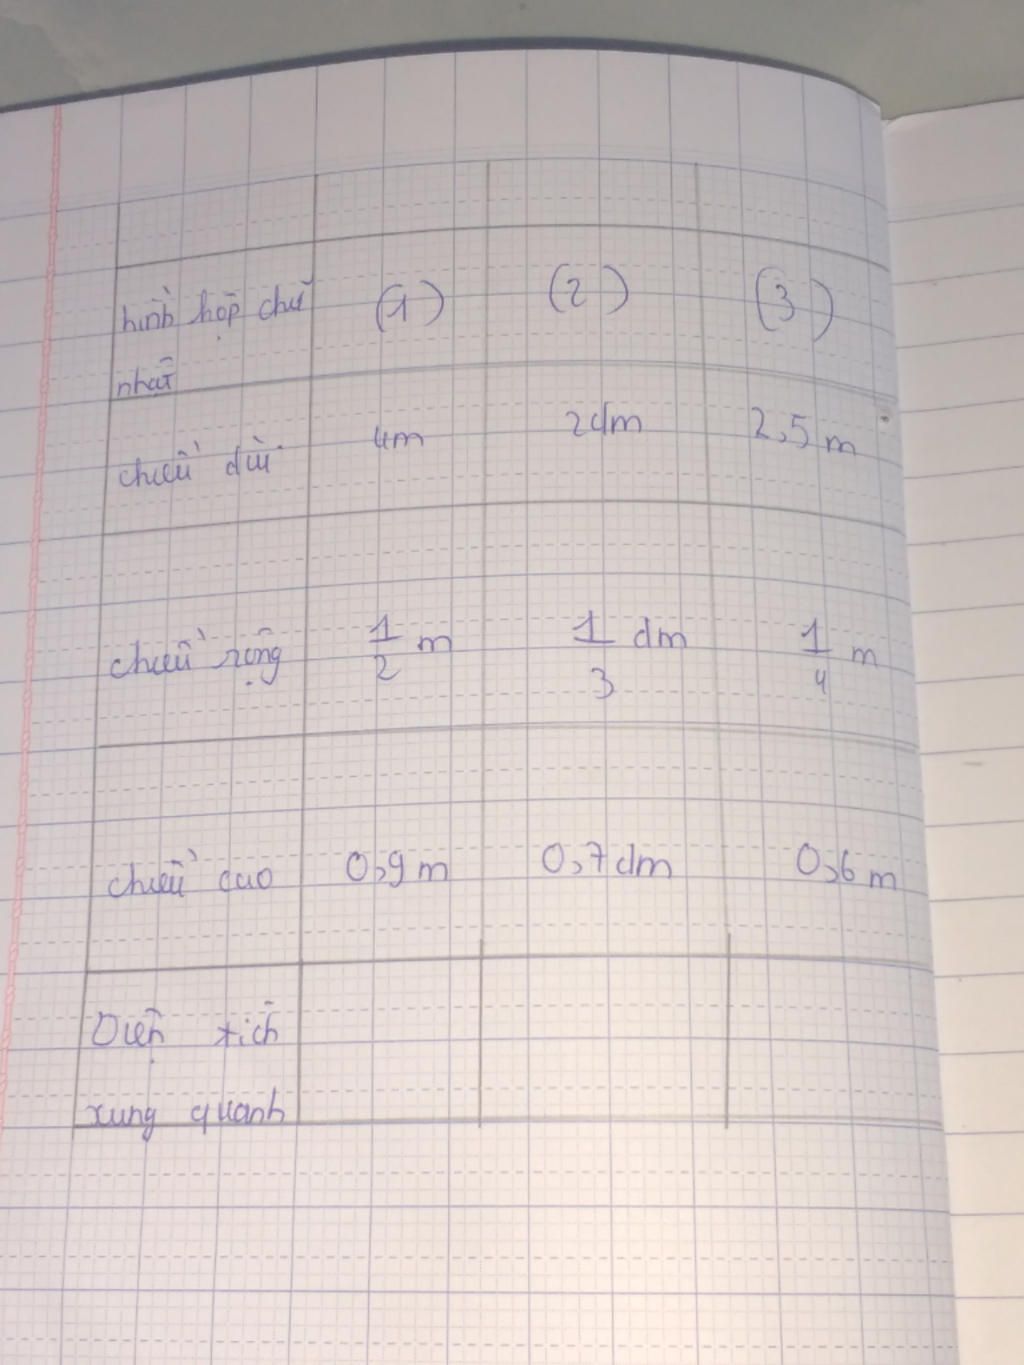 hình hộp chữ (1) (2) (3)
nhật
chiều dài 4m 2dm 2,5 m
chiều rộng 1/2 m 1/3 dm 1/4 m
chiều cao 0,9 m 0,7 dm 0,6 m
Diện tích
xung quanh